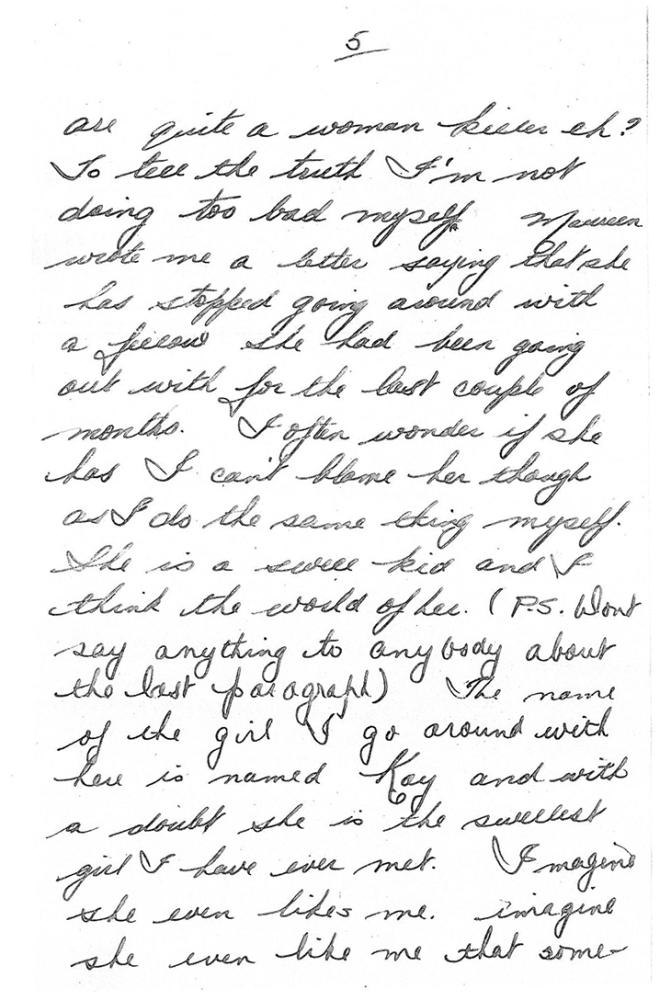 5
are quite a woman killer eh?
To tell the truth I'm not
doing too bad myself. Maureen
wrote me a letter saying that she
has stopped going around with
a fellow she had been going
out with for the last couple of
months. I often wonder if she
has I can't blame her though
as I do the same thing myself.
She is a swell kid and I
think the world of her. (P.S. Wont
say anything to anybody about
the last paragraph) The name
of the girl I go around with
here is named Kay and with
a doubt she is the sweetest
girl I have ever met. Imagine
she even likes me. imagine
she even like me that some-